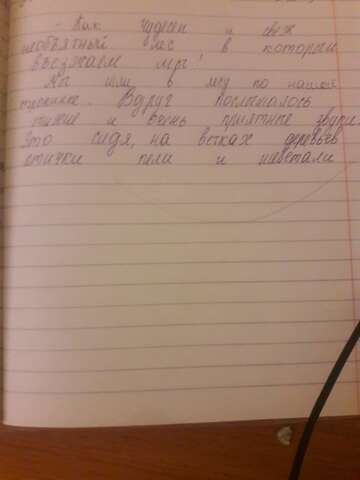 - Как чудесен и свеж
необъятный лес в который
въезжаем мы!
Мы шли в лесу по нашей
тропинке. Вдруг послышалось
тихие и очень приятные звуки
Это сидя, на ветках деревьев
птички пели и